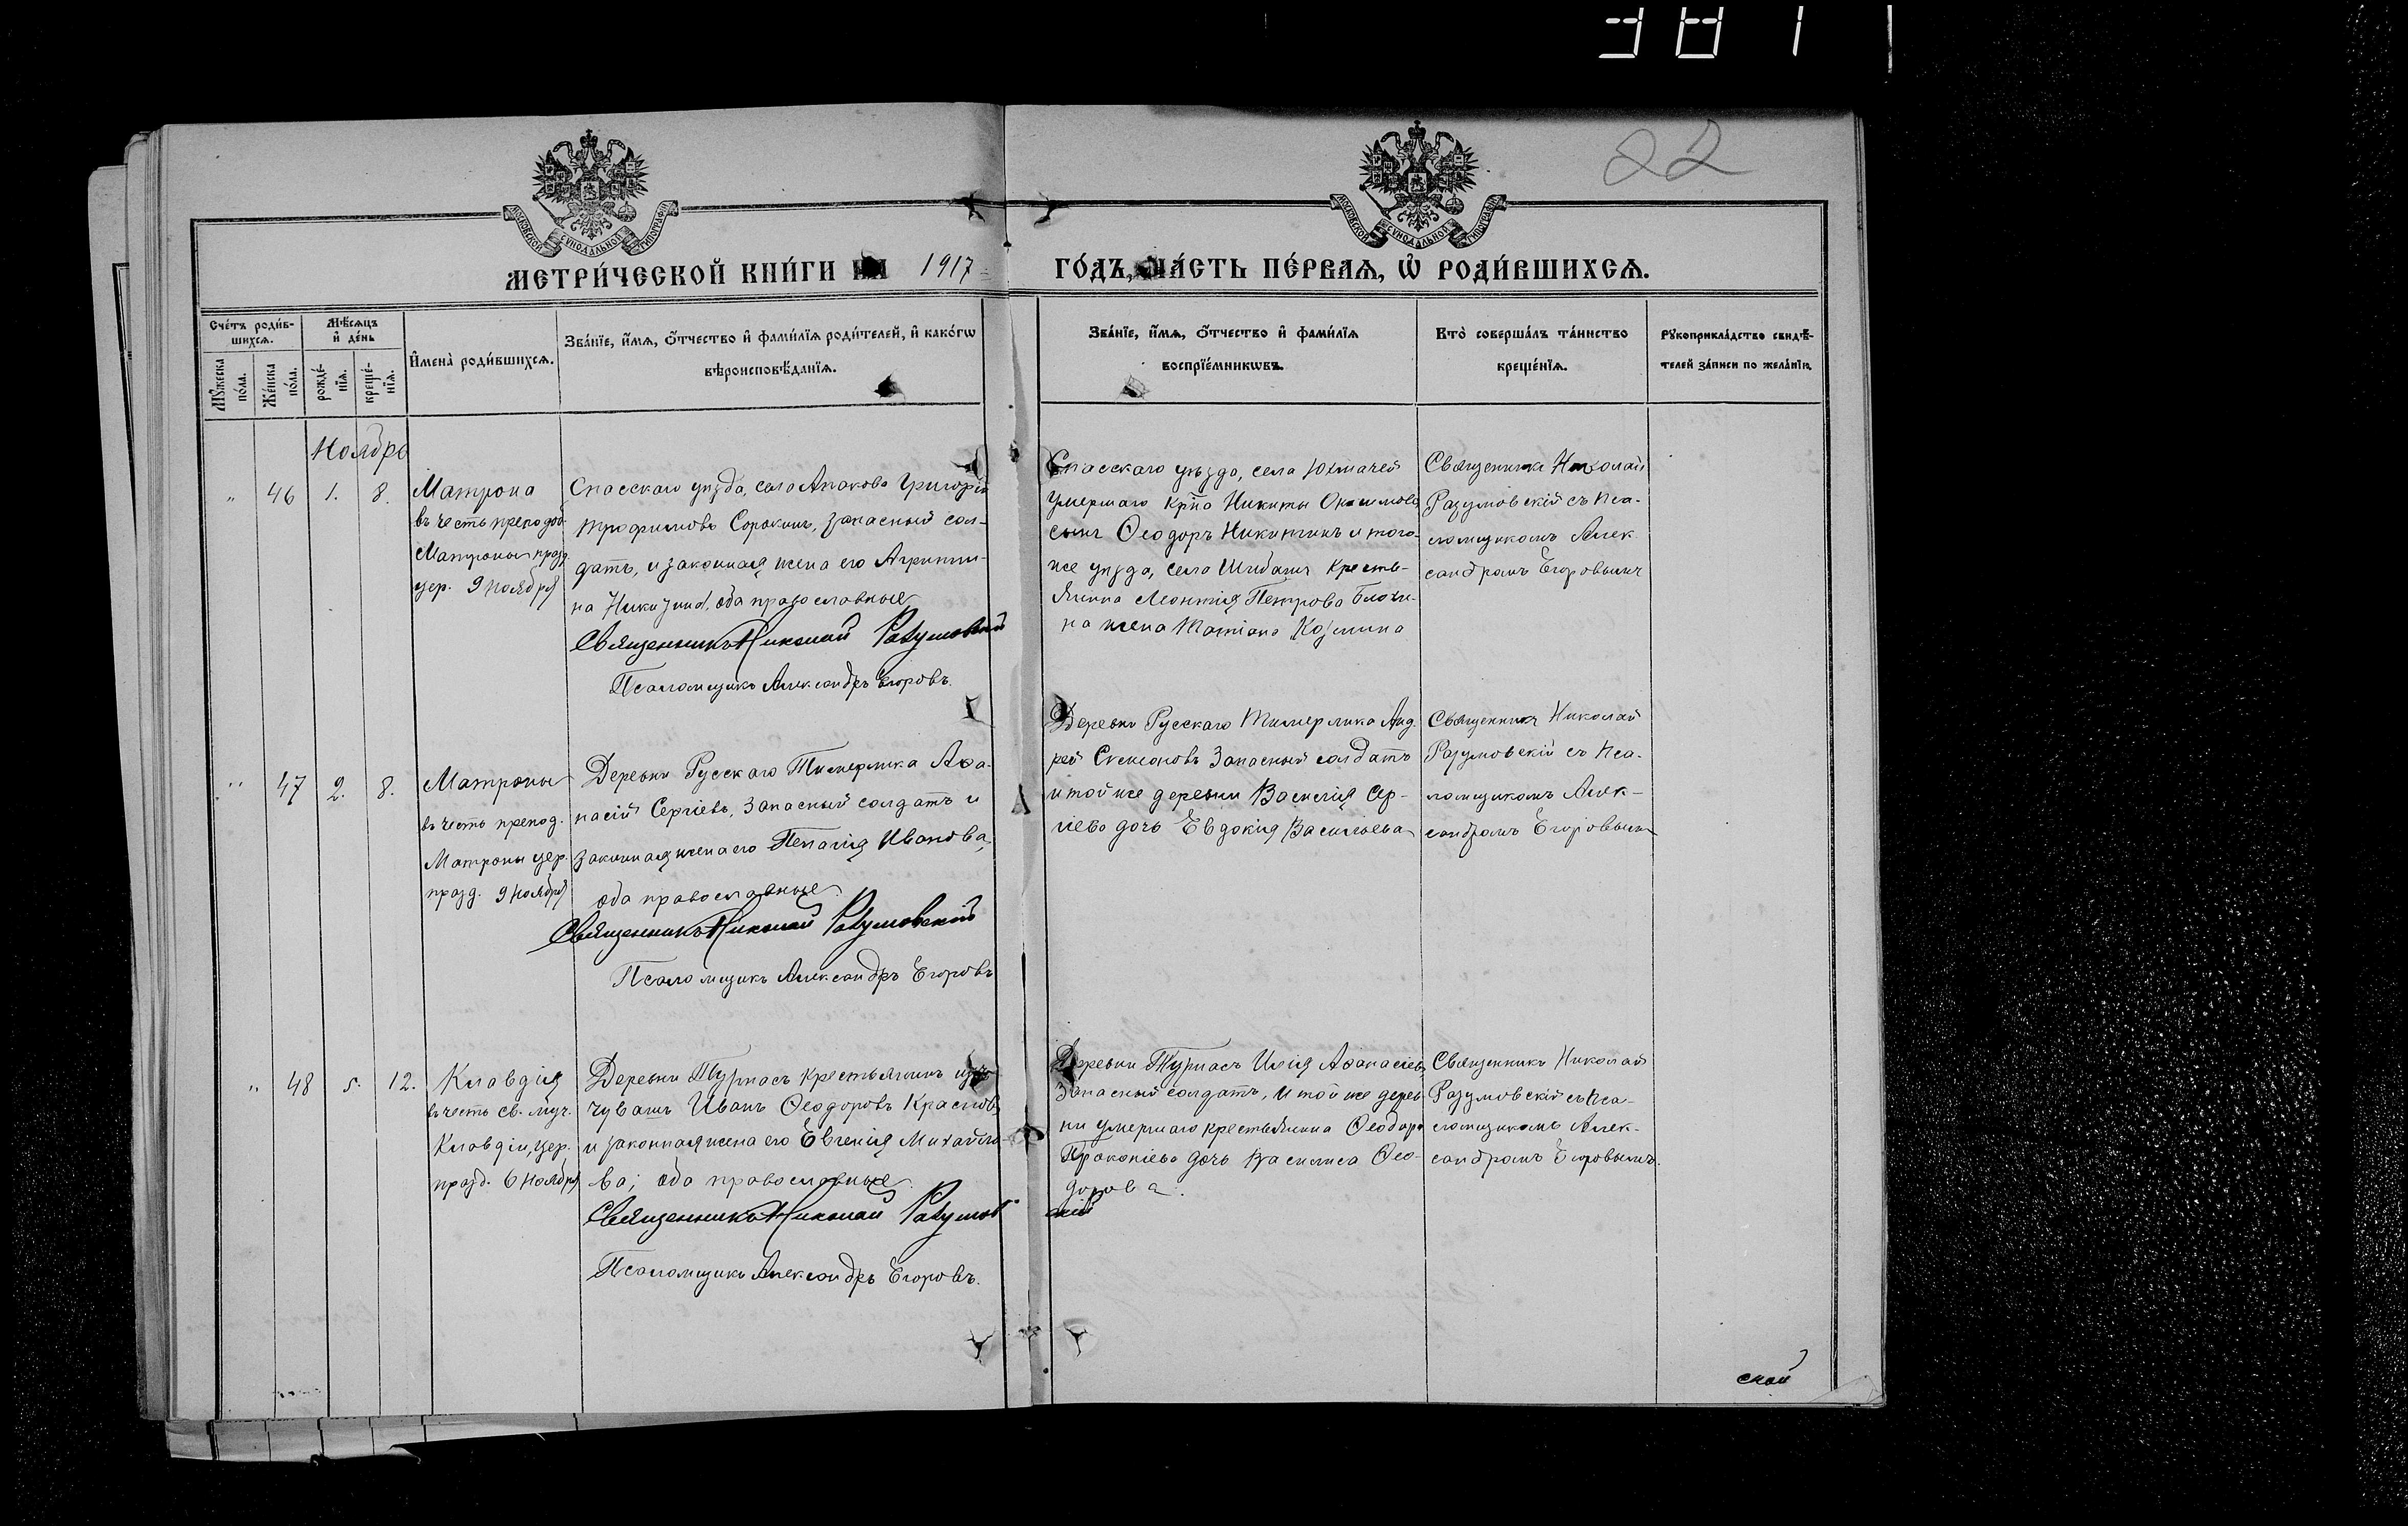 3811
22
МОСКОВСКОЙ СѴНОДАЛЬНОЙ ТИПОГРАФІИ
МОСКОВСКОЙ СѴНОДАЛЬНОЙ ТИПОГРАФІИ
МЕТРИ́ЧЕСКОЙ КНИ́ГИ НА 1917 ГО́ДЪ, ЧА́СТЬ ПЕ́РВАѦ, Ѡ҆ РОДИ́ВШИХСѦ.
Сче́тъ роди́в-
шихсѧ.
Мꙋ́жеска
по́ла.
Же́нска
по́ла.
Мѣ́сѧцъ
и҆ де́нь
рожде́-
нїѧ.
креще́-
нїѧ.
И҆мена̀ роди́вшихсѧ.
Зва́нїе, и҆́мѧ, ѻ҆́тчество и҆ фами́лїѧ роди́телей, и҆ како́гѡ
вѣроисповѣ́данїѧ.
Зва́нїе, и҆́мѧ, ѻ҆́тчество и҆ фами́лїѧ
воспрїе́мникѡвъ.
Кто̀ соверша́лъ та́инство
креще́нїѧ.
Рꙋкоприкла́дство свидѣ́-
телей за́писи по жела́нїю.
Ноябрь
„ 46 1. 8.
Матрона
въ честь преподоб.
Матроны празд.
цер. 9 ноября
Спасскаго уѣзда, села Апаково Григорій
Трофимовъ Сорокинъ, запасный сол-
датъ, и законная жена его Агриппи-
на, оба православные
Священникъ Николай Разумовскій
Псаломщикъ Александръ Егоровъ.
Спасскаго уѣзда, села Юхмачей
умершаго Кр-на Никиты
сынъ Ѳеодоръ Никитинъ и того-
же уѣзда, села Шибаши кресть-
янина Леонтія Петрова Блохи-
на жена Татіана Козмина
Священникъ Николай
Разумовскій съ пса-
ломщикомъ Алек
сандромъ Егоровымъ
„ 47 2. 8.
Матроны
въ честь препод.
Матроны цер.
празд. 9 ноября
Деревни Русскаго Тимерлика Аѳа-
насій Сергіевъ, запасный солдатъ и
законная жена его Пелагія Иванова,
оба православные
Священникъ Николай Разумовскій
Псаломщикъ Александръ Егоровъ
Деревни Русскаго Тимерлика Анд
рей Симеоновъ запасный солдатъ
и той же деревни Василія Сер-
гіева дочь Евдокія Васильева
Священникъ Николай
Разумовскій съ пса-
ломщикомъ Алек-
сандромъ Егоровымъ
„ 48 5. 12.
Клавдія
въ честь св. муч.
Клавдіи, цер.
празд. 6 ноября
Деревни Турнасъ крестьянинъ изъ
чувашъ Иванъ Ѳеодоровъ Красновъ
и законная жена его Евгенія Михайло-
ва; оба православные
Священникъ Николай Разумов
скій
Псаломщикъ Александръ Егоровъ.
Деревни Турнасъ Илія Аѳанасіевъ
запасный солдатъ, и той же дерев-
ни умершаго крестьянина Ѳеодора
Прокопіева дочь Василиса Ѳео-
дорова.
Священникъ Николай
Разумовскій съ пса-
ломщикомъ Алек-
сандромъ Егоровымъ.
ской